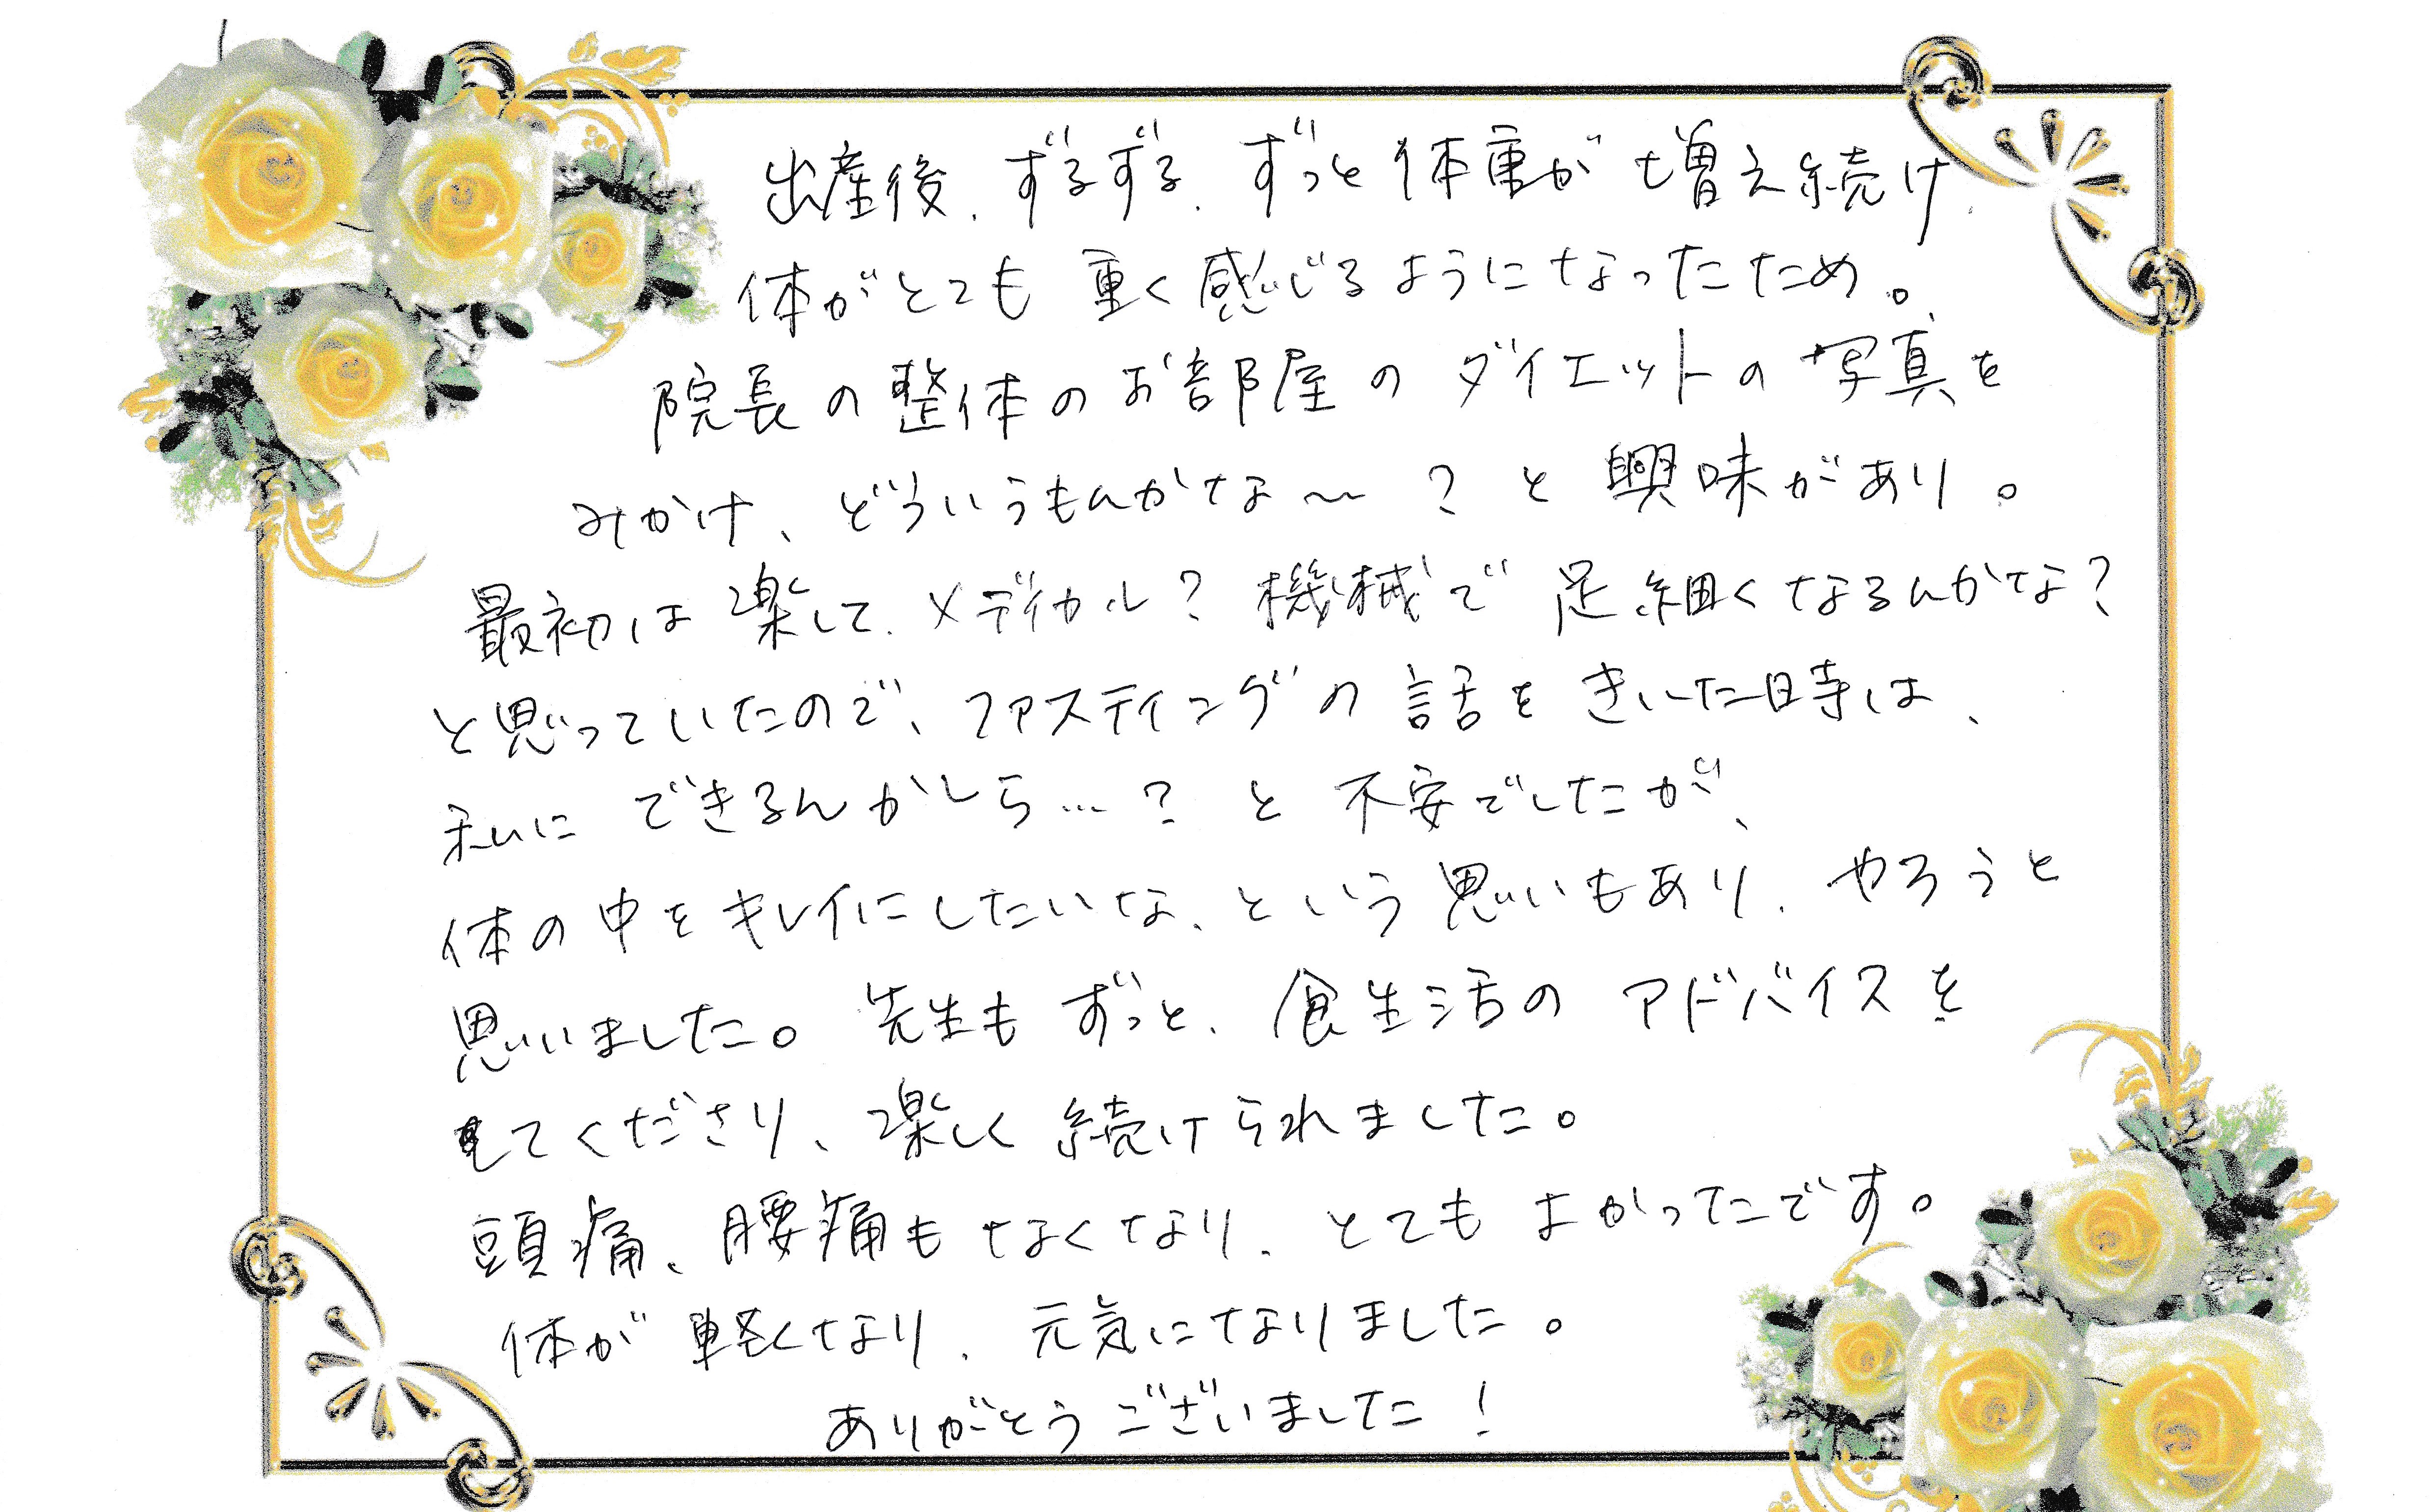 出産後、ずるずる、ずっと体重が増え続け、
体がとても重く感じるようになったため。
院長の整体のお部屋のダイエットの写真を
みかけ、どういうもんかな〜？と興味があり。
最初は楽して、メディカル？機械で足細くなるんかな？
と思っていたので、ファスティングの話をきいた時は、
私にできるんかしら…？と不安でしたが、
体の中をキレイにしたいな、という思いもあり、やろうと
思いました。先生もずっと、食生活のアドバイスを
してくださり、楽しく続けられました。
頭痛、腰痛もなくなり、とてもよかったです。
体が軽くなり、元気になりました。
ありがとうございました！